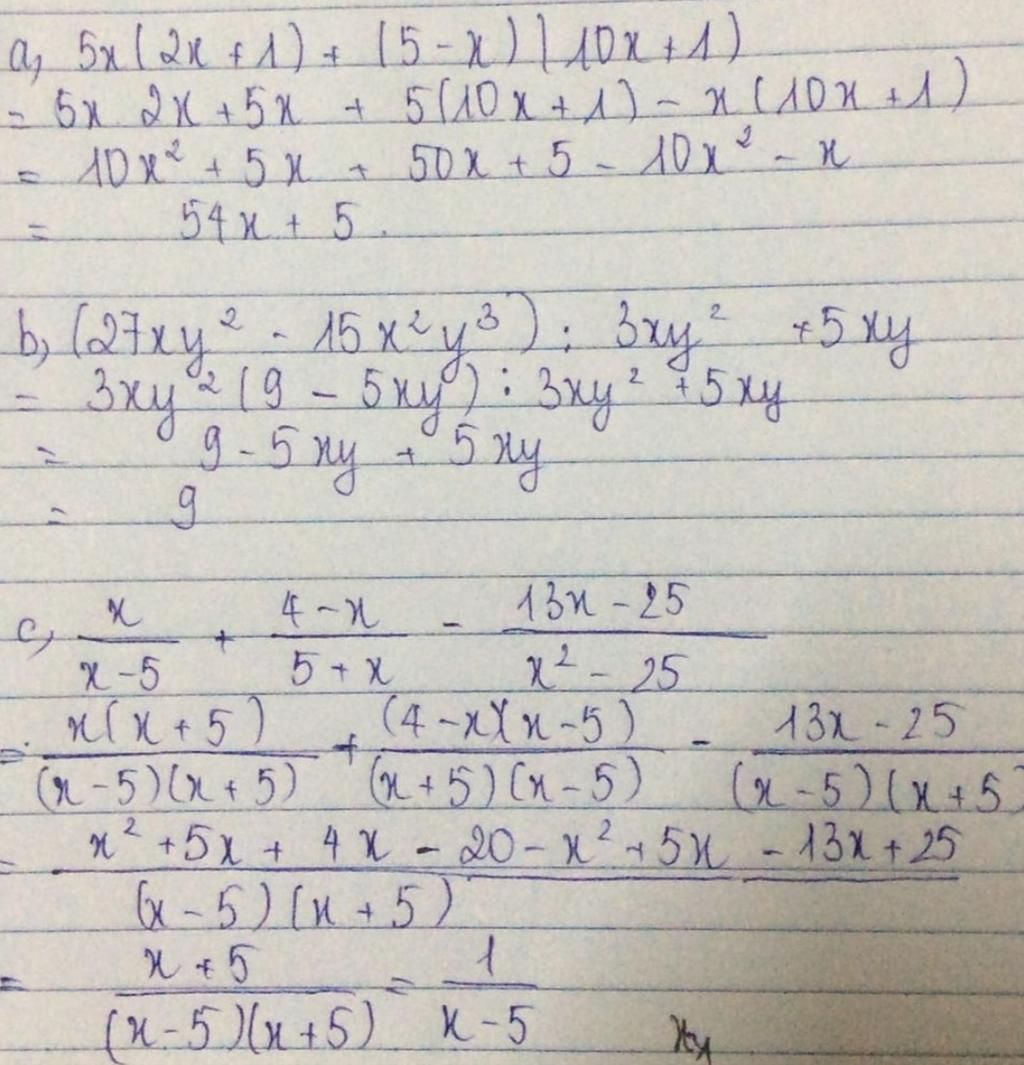 a, 5x(2x+1) + (5-x)(10x+1)
= 5x 2x + 5x + 5(10x+1) - x(10x+1)
= 10x² + 5x + 50x + 5 - 10x² - x
= 54x + 5.
b, (27xy² - 15x²y³) : 3xy² + 5xy
= 3xy²(9 - 5xy) : 3xy² + 5xy
= 9 - 5xy + 5xy
= 9
c, x/(x-5) + (4-x)/(5+x) - (13x-25)/(x²-25)
= x(x+5)/(x-5)(x+5) + (4-x)(x-5)/(x+5)(x-5) - (13x-25)/(x-5)(x+5)
= (x² + 5x + 4x - 20 - x² + 5x - 13x + 25)/(x-5)(x+5)
= (x+5)/(x-5)(x+5) = 1/(x-5)